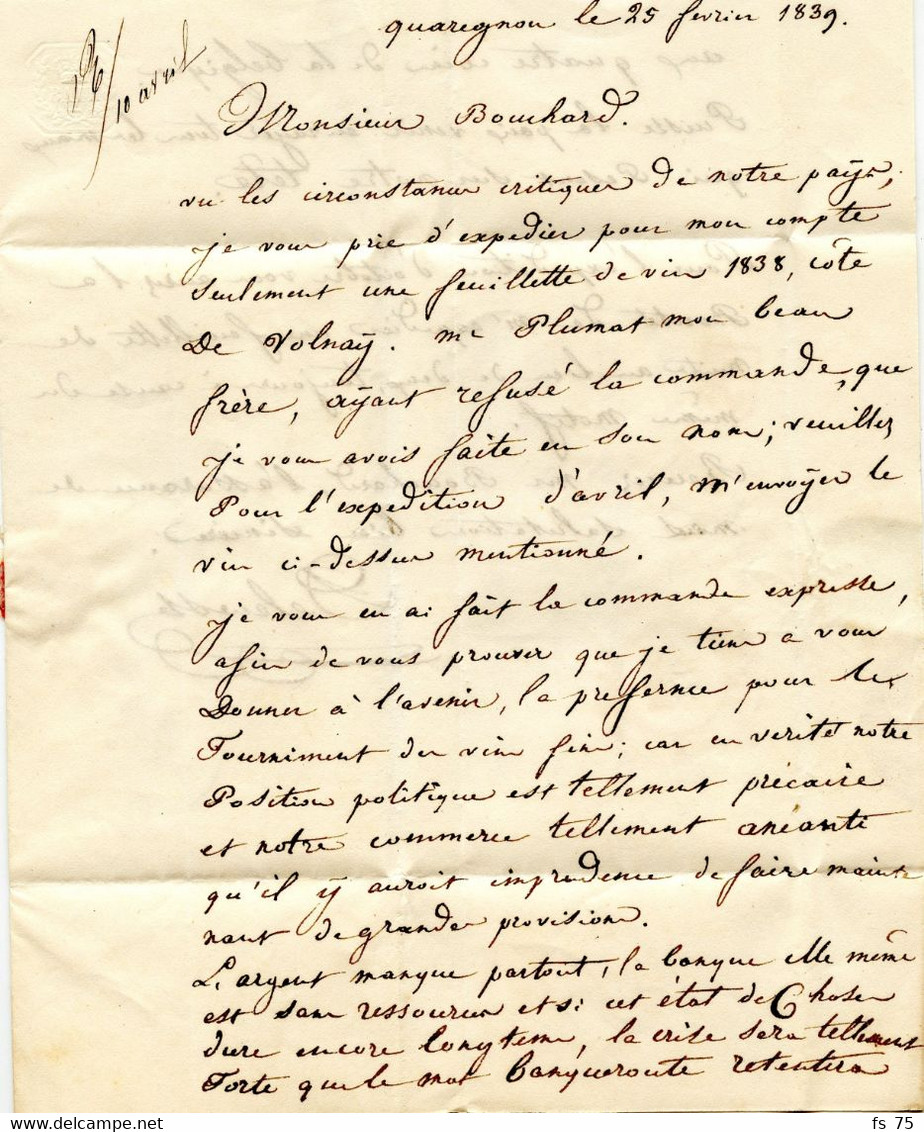 quaregnon le 25 fevrier 1839.
10 avril
Monsieur Bouchard.
vu les circonstances critiques de notre pays,
je vous prie d'expedier pour mon compte
seulement une feuillette de vin 1838, côte
De Volnaÿ. mr Plumat mon beau
frère, aÿant refusé la commande, que
je vous avois faite en son nom; veuillez
Pour l'expedition d'avril, m'envoÿer le
vin ci-dessus mentionné.
je vous en ai fait la commande expresse,
afin de vous prouver que je tiens a vous
Donner à l'avenir, la preference pour les
Fourniment des vins fins; car en verité notre
Position politique est tellement précaire
et notre commerce tellement anéanti
qu'il ÿ auroit imprudence de faire mainte
nant de grandes provisions.
L'argent manque partout, la banque elle même
est sans ressources et si cet état de Choses
dure encore longtems, la crise sera tellement
Forte que le mot banqueroute retentira
fs 75